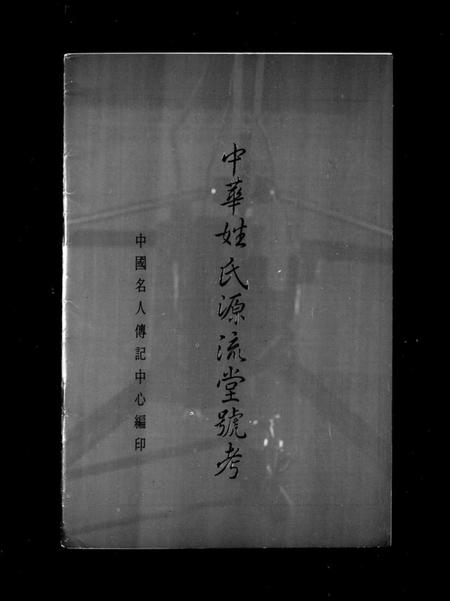 中華姓氏源流堂號考
中國名人傳記中心編印